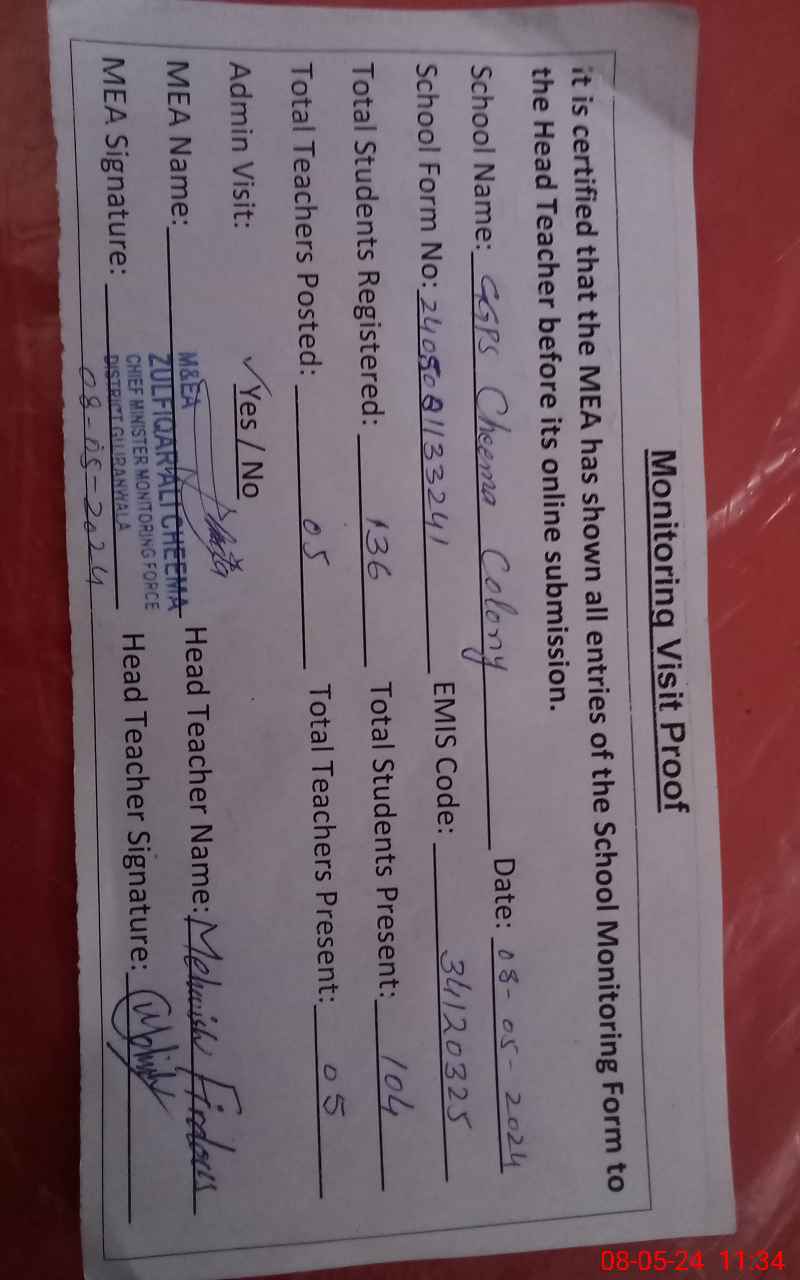 Monitoring Visit Proof
it is certified that the MEA has shown all entries of the School Monitoring Form to
the Head Teacher before its online submission.
School Name: GGPS Cheema Colony Date: 08-05-2024
School Form No: 240508133241 EMIS Code: 34120325
Total Students Registered: 136 Total Students Present: 104
Total Teachers Posted: 05 Total Teachers Present: 05
Admin Visit: ✓Yes / No
MEA Name: Head Teacher Name: Mehwish Firdous
M&EA
ZULFIQAR ALI CHEEMA
CHIEF MINISTER MONITORING FORCE
DISTRICT GUJRANWALA
MEA Signature: Head Teacher Signature:
08-05-2024
08-05-24 11:34